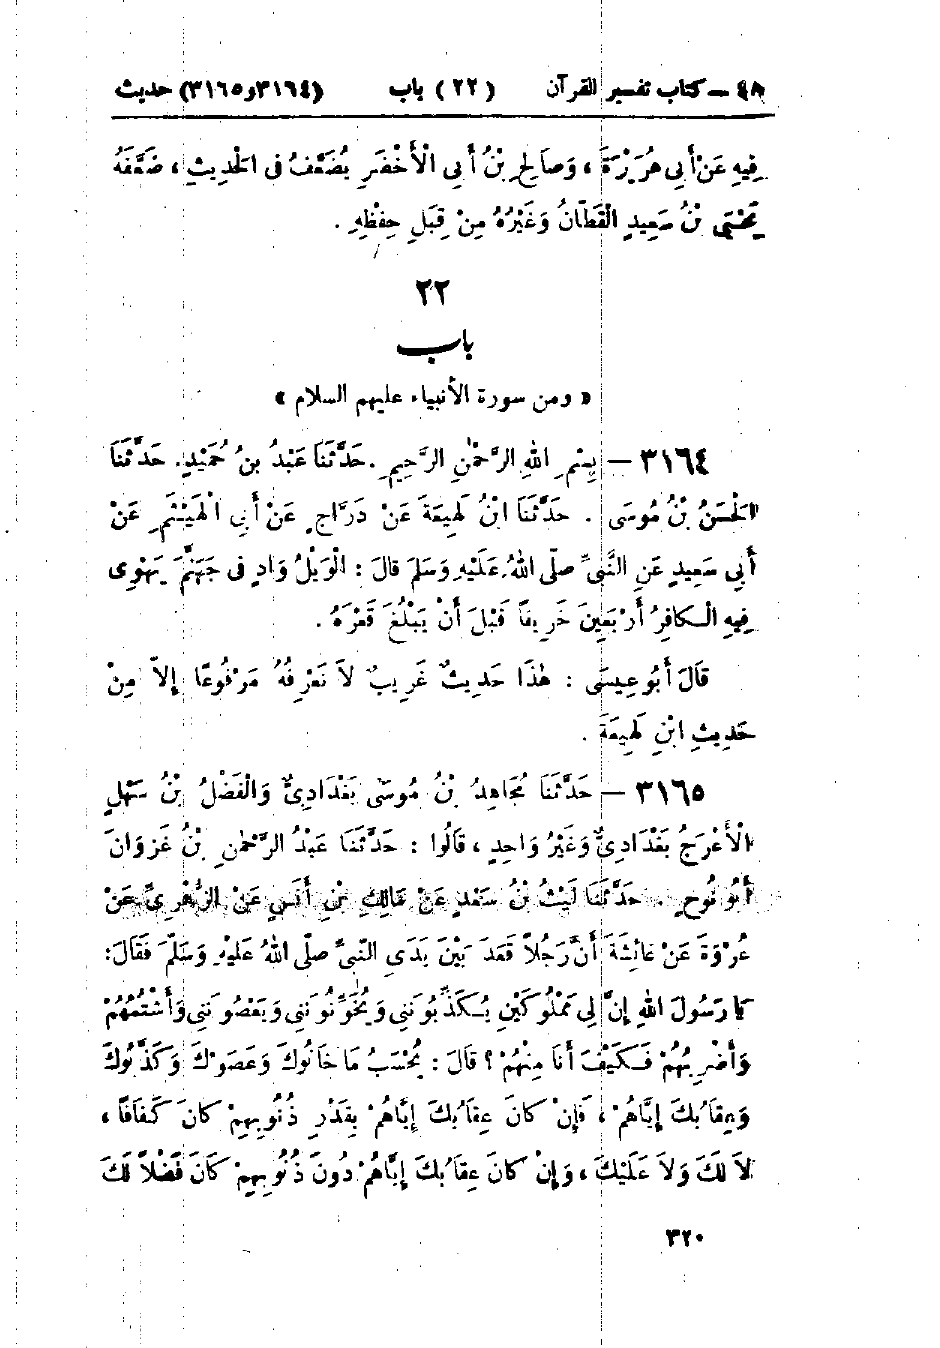 ٤٨ – كتاب تفسير القرآن (٢٢) باب (٣١٦٤ و ٣١٦٥) حديث
فِيهِ عَنْ أَبِي هُرَيْرَةَ ، وَصَالِحُ بْنُ أَبِي الْأَخْضَرِ يُضَعَّفُ فِى الْحَدِيثِ ، ضَعَّفَهُ
يَحْيَى بْنُ سَعِيدٍ الْقَطَّانُ وَغَيْرُهُ مِنْ قِبَلِ حِفْظِهِ .
٢٢
باب
« ومن سورة الأنبياء عليهم السلام »
٣١٦٤ – بِسْمِ اللهِ الرَّحْمٰنِ الرَّحِيمِ . حَدَّثَنَا عَبْدُ بنُ حُمَيْدٍ . حَدَّثَنَا
الْحَسَنُ بْنُ مُوسَى . حَدَّثَنَا ابْنُ لَهِيعَةَ عَنْ دَرَّاجٍ عَنْ أَبِي الْهَيْثَمِ عَنْ
أَبِي سَعِيدٍ عَنِ النَّبِىِّ صلّى اللهُ عَلَيْهِ وَسَلمَ قالَ : الْوَيْلُ وَادٍ فى جَهَنَّمَ يَهْوِى
فِيهِ الْكافِرُ أَرْبَعِينَ خَرِيفاً قَبْلَ أَنْ يَبْلُغَ قَعْرَهُ .
قالَ أَبُو عِيسَى : هٰذَا حَدِيثٌ غَرِيبٌ لاَ نَعْرِفُهُ مَرْفُوعًا إلاّ مِنْ
حَدِيثِ ابْنِ لَهِيعَةَ .
٣١٦٥ – حَدَّثَنَا مُجَاهِدُ بْنُ مُوسَى بَغْدَادِىٌّ وَالْفَضْلُ بْنُ سَهْلٍ
الْأَعْرَجُ بَغْدَادِىٌّ وَغَيْرُ وَاحِدٍ ، قَالُوا : حَدَّثَنَا عَبْدُ الرَّحْمٰنِ بْنُ غَزْوَانَ
أَبُو نُوحٍ . حَدَّثَنَا لَيْثُ بْنُ سَعْدٍ عَنْ مَالِكِ بْنِ أَنَسٍ عَنْ الزُّهْرِىِّ عَنْ
عُرْوَةَ عَنْ عائِشَةَ أَنَّ رَجُلاً قَعَدَ بَيْنَ يَدَى النّبىِّ صلّى اللهُ عَلَيْهِ وَسَلّمَ فَقَالَ:
يَا رَسُولَ اللهِ إنَّ لِي مَمْلُوكَيْنِ يُكَذِّبُونَنِى وَيُخَوِّنُونَنِى وَيَعْصُونَنِى وَأَشْتُمُهُمْ
وَأَضْرِبُهُمْ فَكَيْفَ أَنَا مِنْهُمْ ؟ قالَ : يُحْسَبُ مَا خَانُوكَ وَعَصَوْكَ وَكَذَّبُوكَ
وَعِقَابُكَ إيَّاهُمْ ، فَإنْ كانَ عِقَابُكَ إيَّاهُمْ بِقَدْرِ ذُنُوبِهِمْ كانَ كَفَافًا ،
لاَ لَكَ وَلاَ عَلَيْكَ ، وَإنْ كانَ عِقَابُكَ إيَّاهُمْ دُونَ ذُنُوبِهِمْ كَانَ فَضْلاً لَكَ
٣٢٠